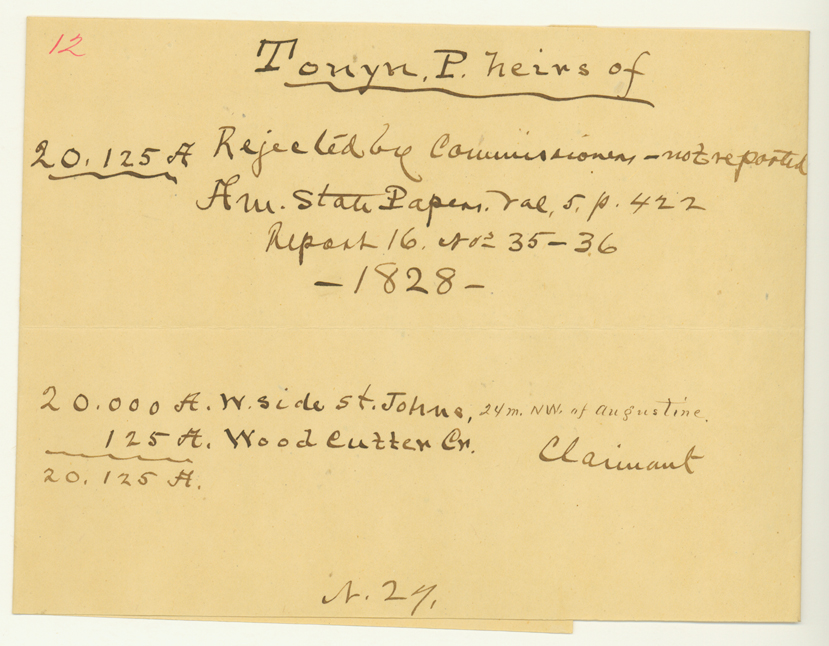 12
Tonyn, P. heirs of
20.125 A Rejected by Commissioners - not reported
Am. State Papers. Vol, 5, p. 422
Report 16. Nos 35-36
-1828-
20.000 A. W. side St. Johns, 24m. NW. of Augustine.
125 A. Wood Cutter Cr.
Claimant
20.125 A.
N. 27.